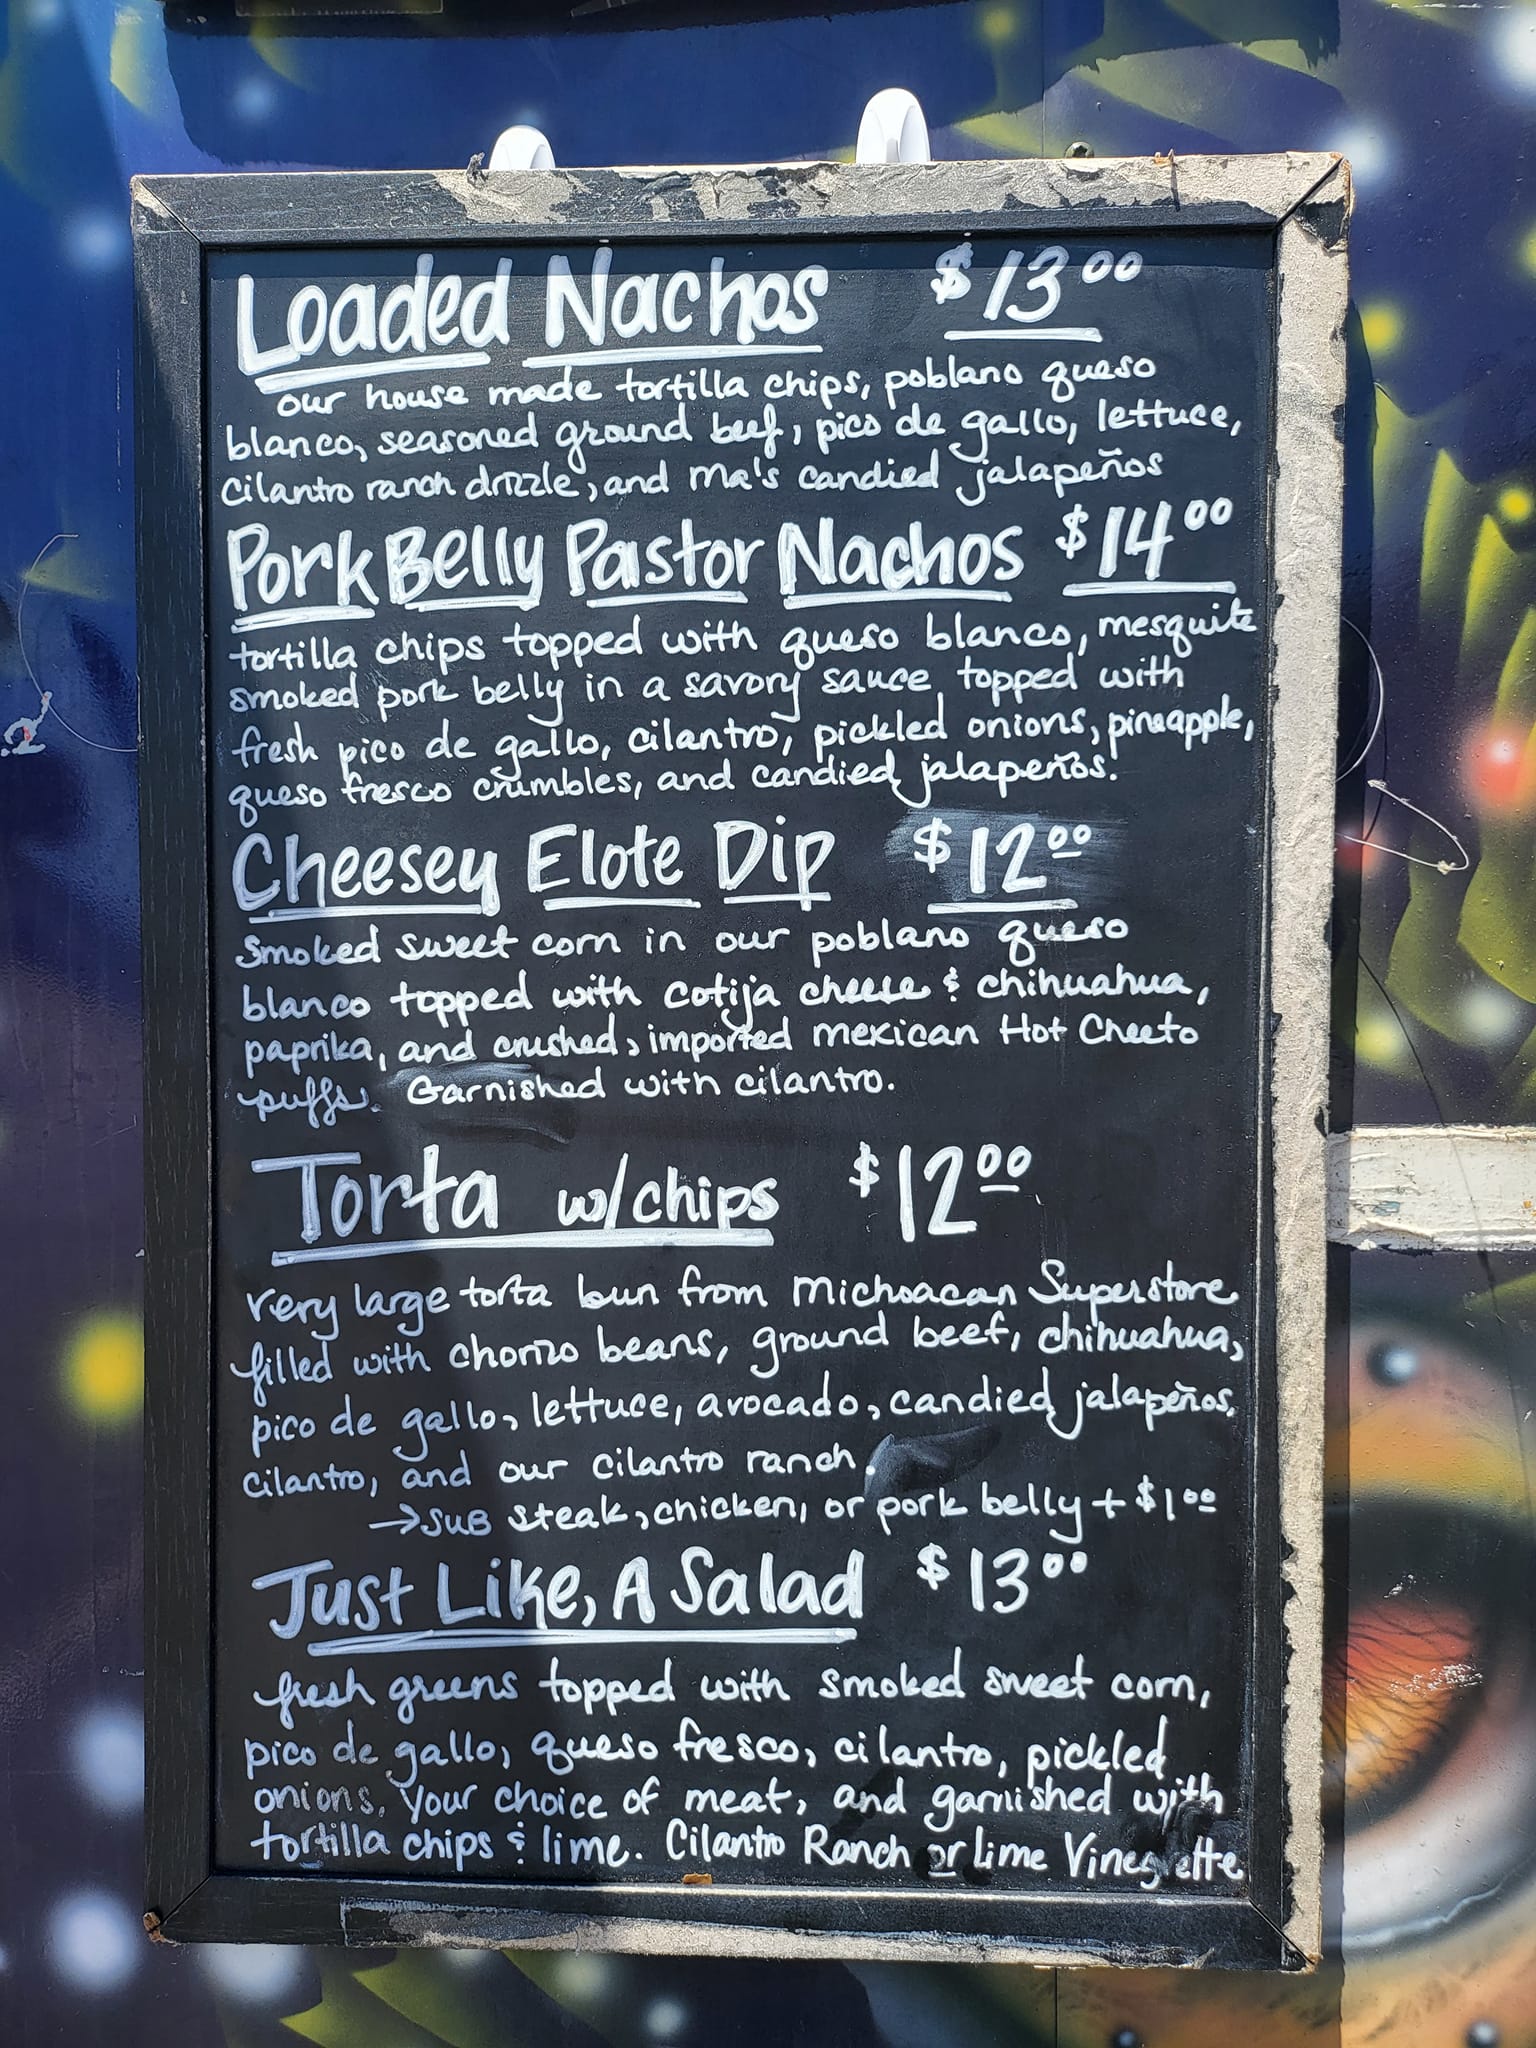 Loaded Nachos $13.00
our house made tortilla chips, poblano queso
blanco, seasoned ground beef, pico de gallo, lettuce,
cilantro ranch drizzle, and Ma's candied jalapeños
Pork Belly Pastor Nachos $14.00
tortilla chips topped with queso blanco, mesquite
smoked pork belly in a savory sauce topped with
fresh pico de gallo, cilantro, pickled onions, pineapple,
queso fresco crumbles, and candied jalapeños!
Cheesey Elote Dip $12.00
smoked sweet corn in our poblano queso
blanco topped with cotija cheese & chihuahua,
paprika, and crushed, imported mexican Hot Cheeto
puffs. Garnished with cilantro.
Torta w/chips $12.00
very large torta bun from Michoacan Superstore
filled with chorizo beans, ground beef, chihuahua,
pico de gallo, lettuce, avocado, candied jalapeños,
cilantro, and our cilantro ranch.
→SUB steak, chicken, or pork belly + $1.00
Just Like, A Salad $13.00
fresh greens topped with smoked sweet corn,
pico de gallo, queso fresco, cilantro, pickled
onions, your choice of meat, and garnished with
tortilla chips & lime. Cilantro Ranch or Lime Vinegrette